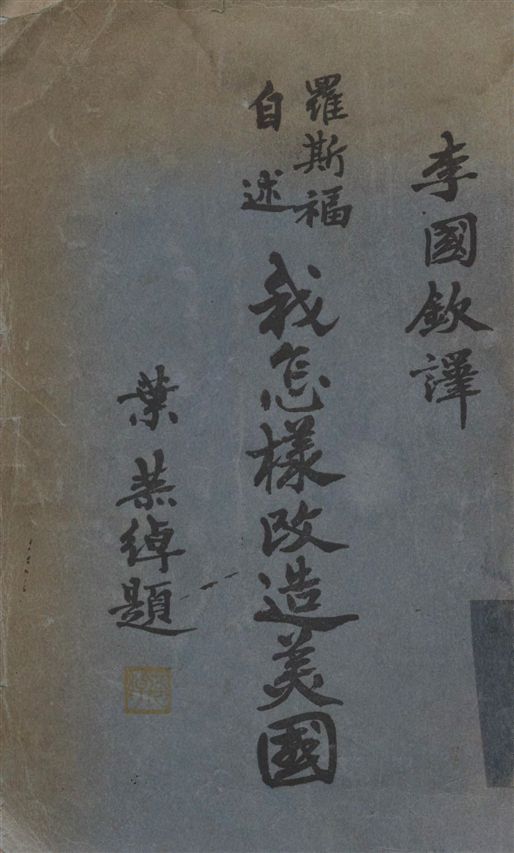 李國欽譯
羅斯福
自述
我怎樣改造美國
葉恭綽題